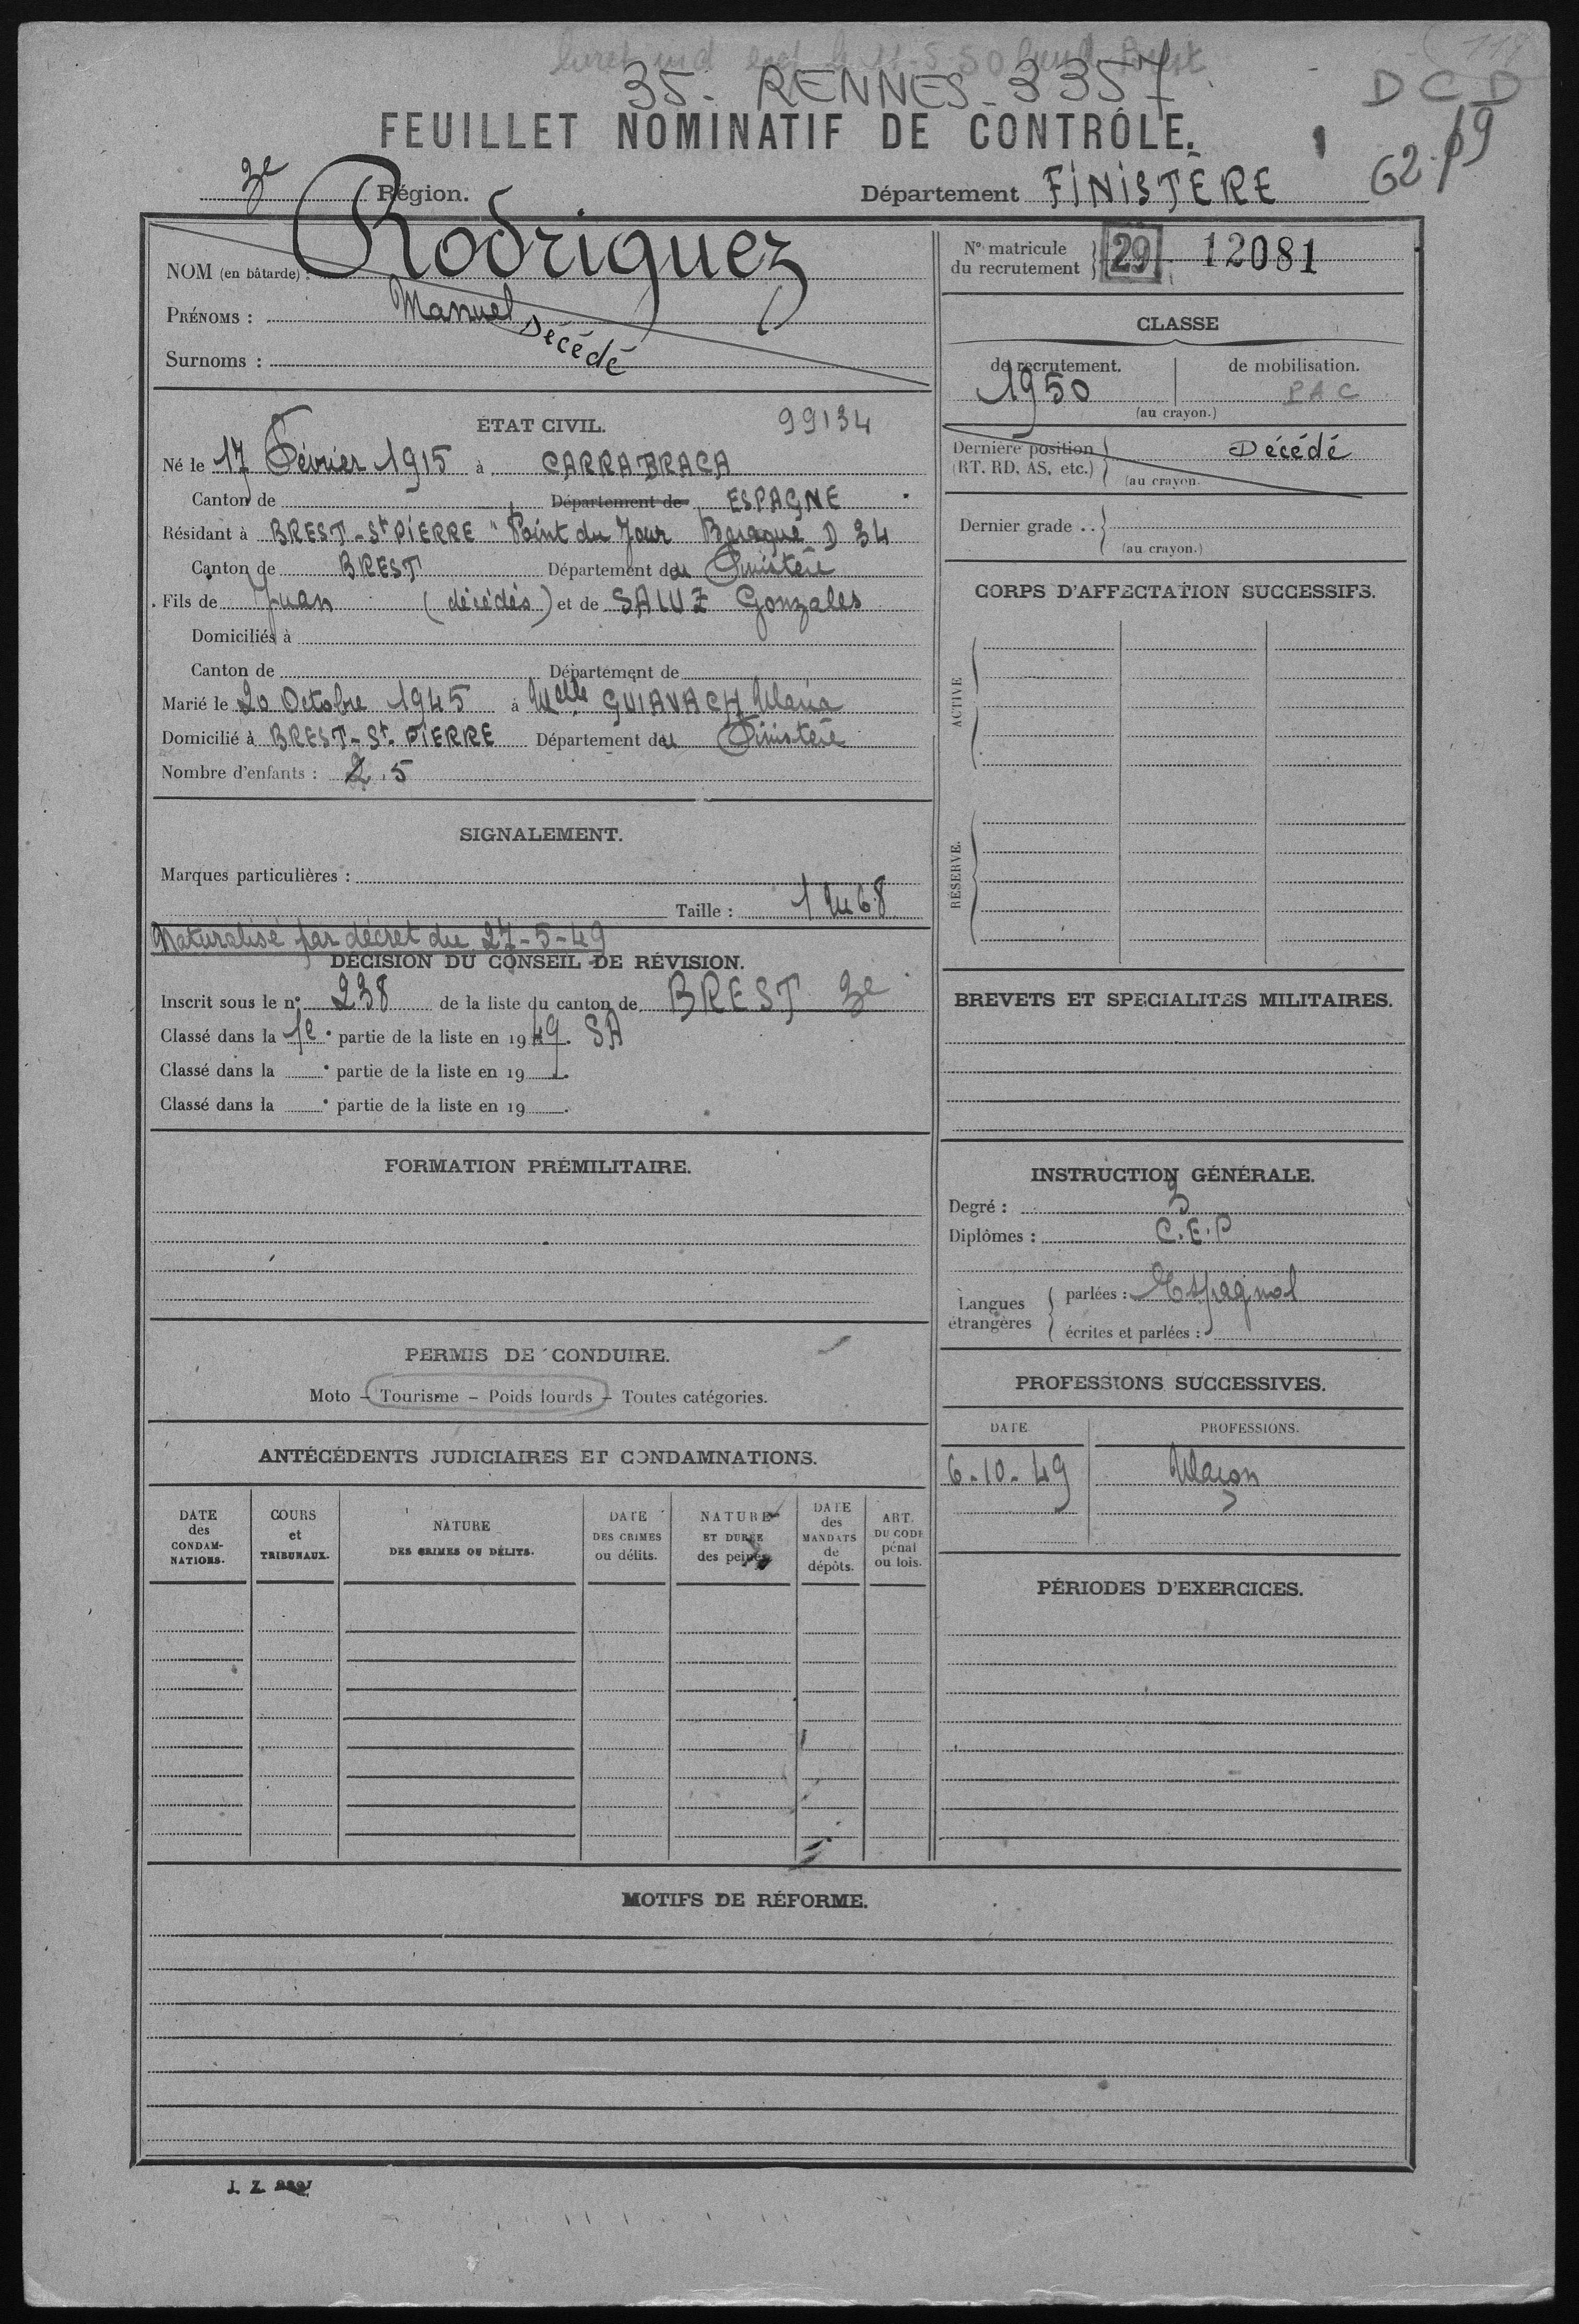 35. RENNES 3357
D C D
FEUILLET NOMINATIF DE CONTRÔLE.
62.19
3e Région.
Département FINISTÈRE
NOM (en bâtarde) : Rodriguez
PRÉNOMS : Manuel
Décédé
Surnoms :
ÉTAT CIVIL. 99134
Né le 17 Février 1915 à CARRABRACA
Canton de Département de ESPAGNE
Résidant à BREST-St PIERRE "Point du Jour Baraque D 34
Canton de BREST Département du Finistère
Fils de Juan (décédés) et de SALUZ Gonzales
Domiciliés à
Canton de Département de
Marié le 20 Octobre 1945 à Melle GUIAVACH Maria
Domicilié à BREST-St. PIERRE Département du Finistère
Nombre d'enfants : 2. 5
SIGNALEMENT.
Marques particulières :
Taille : 1m68
Naturalisé par décret du 27-5-49
DÉCISION DU CONSEIL DE RÉVISION.
Inscrit sous le n° 238 de la liste du canton de BREST 3e
Classé dans la 1e partie de la liste en 1949. SA
Classé dans la partie de la liste en 19 .
Classé dans la partie de la liste en 19 .
FORMATION PRÉMILITAIRE.
PERMIS DE CONDUIRE.
Moto – Tourisme – Poids lourds – Toutes catégories.
ANTÉCÉDENTS JUDICIAIRES ET CONDAMNATIONS.
DATE des CONDAM-NATIONS.
COURS et TRIBUNAUX.
NATURE DES CRIMES OU DÉLITS.
DATE DES CRIMES ou délits.
NATURE ET DURÉE des peines
DATE des MANDATS de dépôts.
ART. DU CODE pénal ou lois.
N° matricule du recrutement 29 12081
CLASSE
de recrutement. de mobilisation.
1950 PAC
(au crayon.)
Dernière position (RT, RD, AS, etc.) Décédé
(au crayon.
Dernier grade ..
(au crayon.)
CORPS D'AFFECTATION SUCCESSIFS.
ACTIVE
RÉSERVE.
BREVETS ET SPECIALITÉS MILITAIRES.
INSTRUCTION GÉNÉRALE.
Degré : 3
Diplômes : C.E.P
Langues étrangères
parlées : Espagnol
écrites et parlées :
PROFESSIONS SUCCESSIVES.
DATE PROFESSIONS.
6-10-49 Maçon
PÉRIODES D'EXERCICES.
MOTIFS DE RÉFORME.